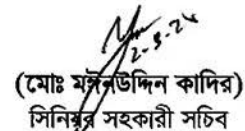 2-9-24
(মোঃ মঈনউদ্দিন কাদির)
সিনিয়র সহকারী সচিব